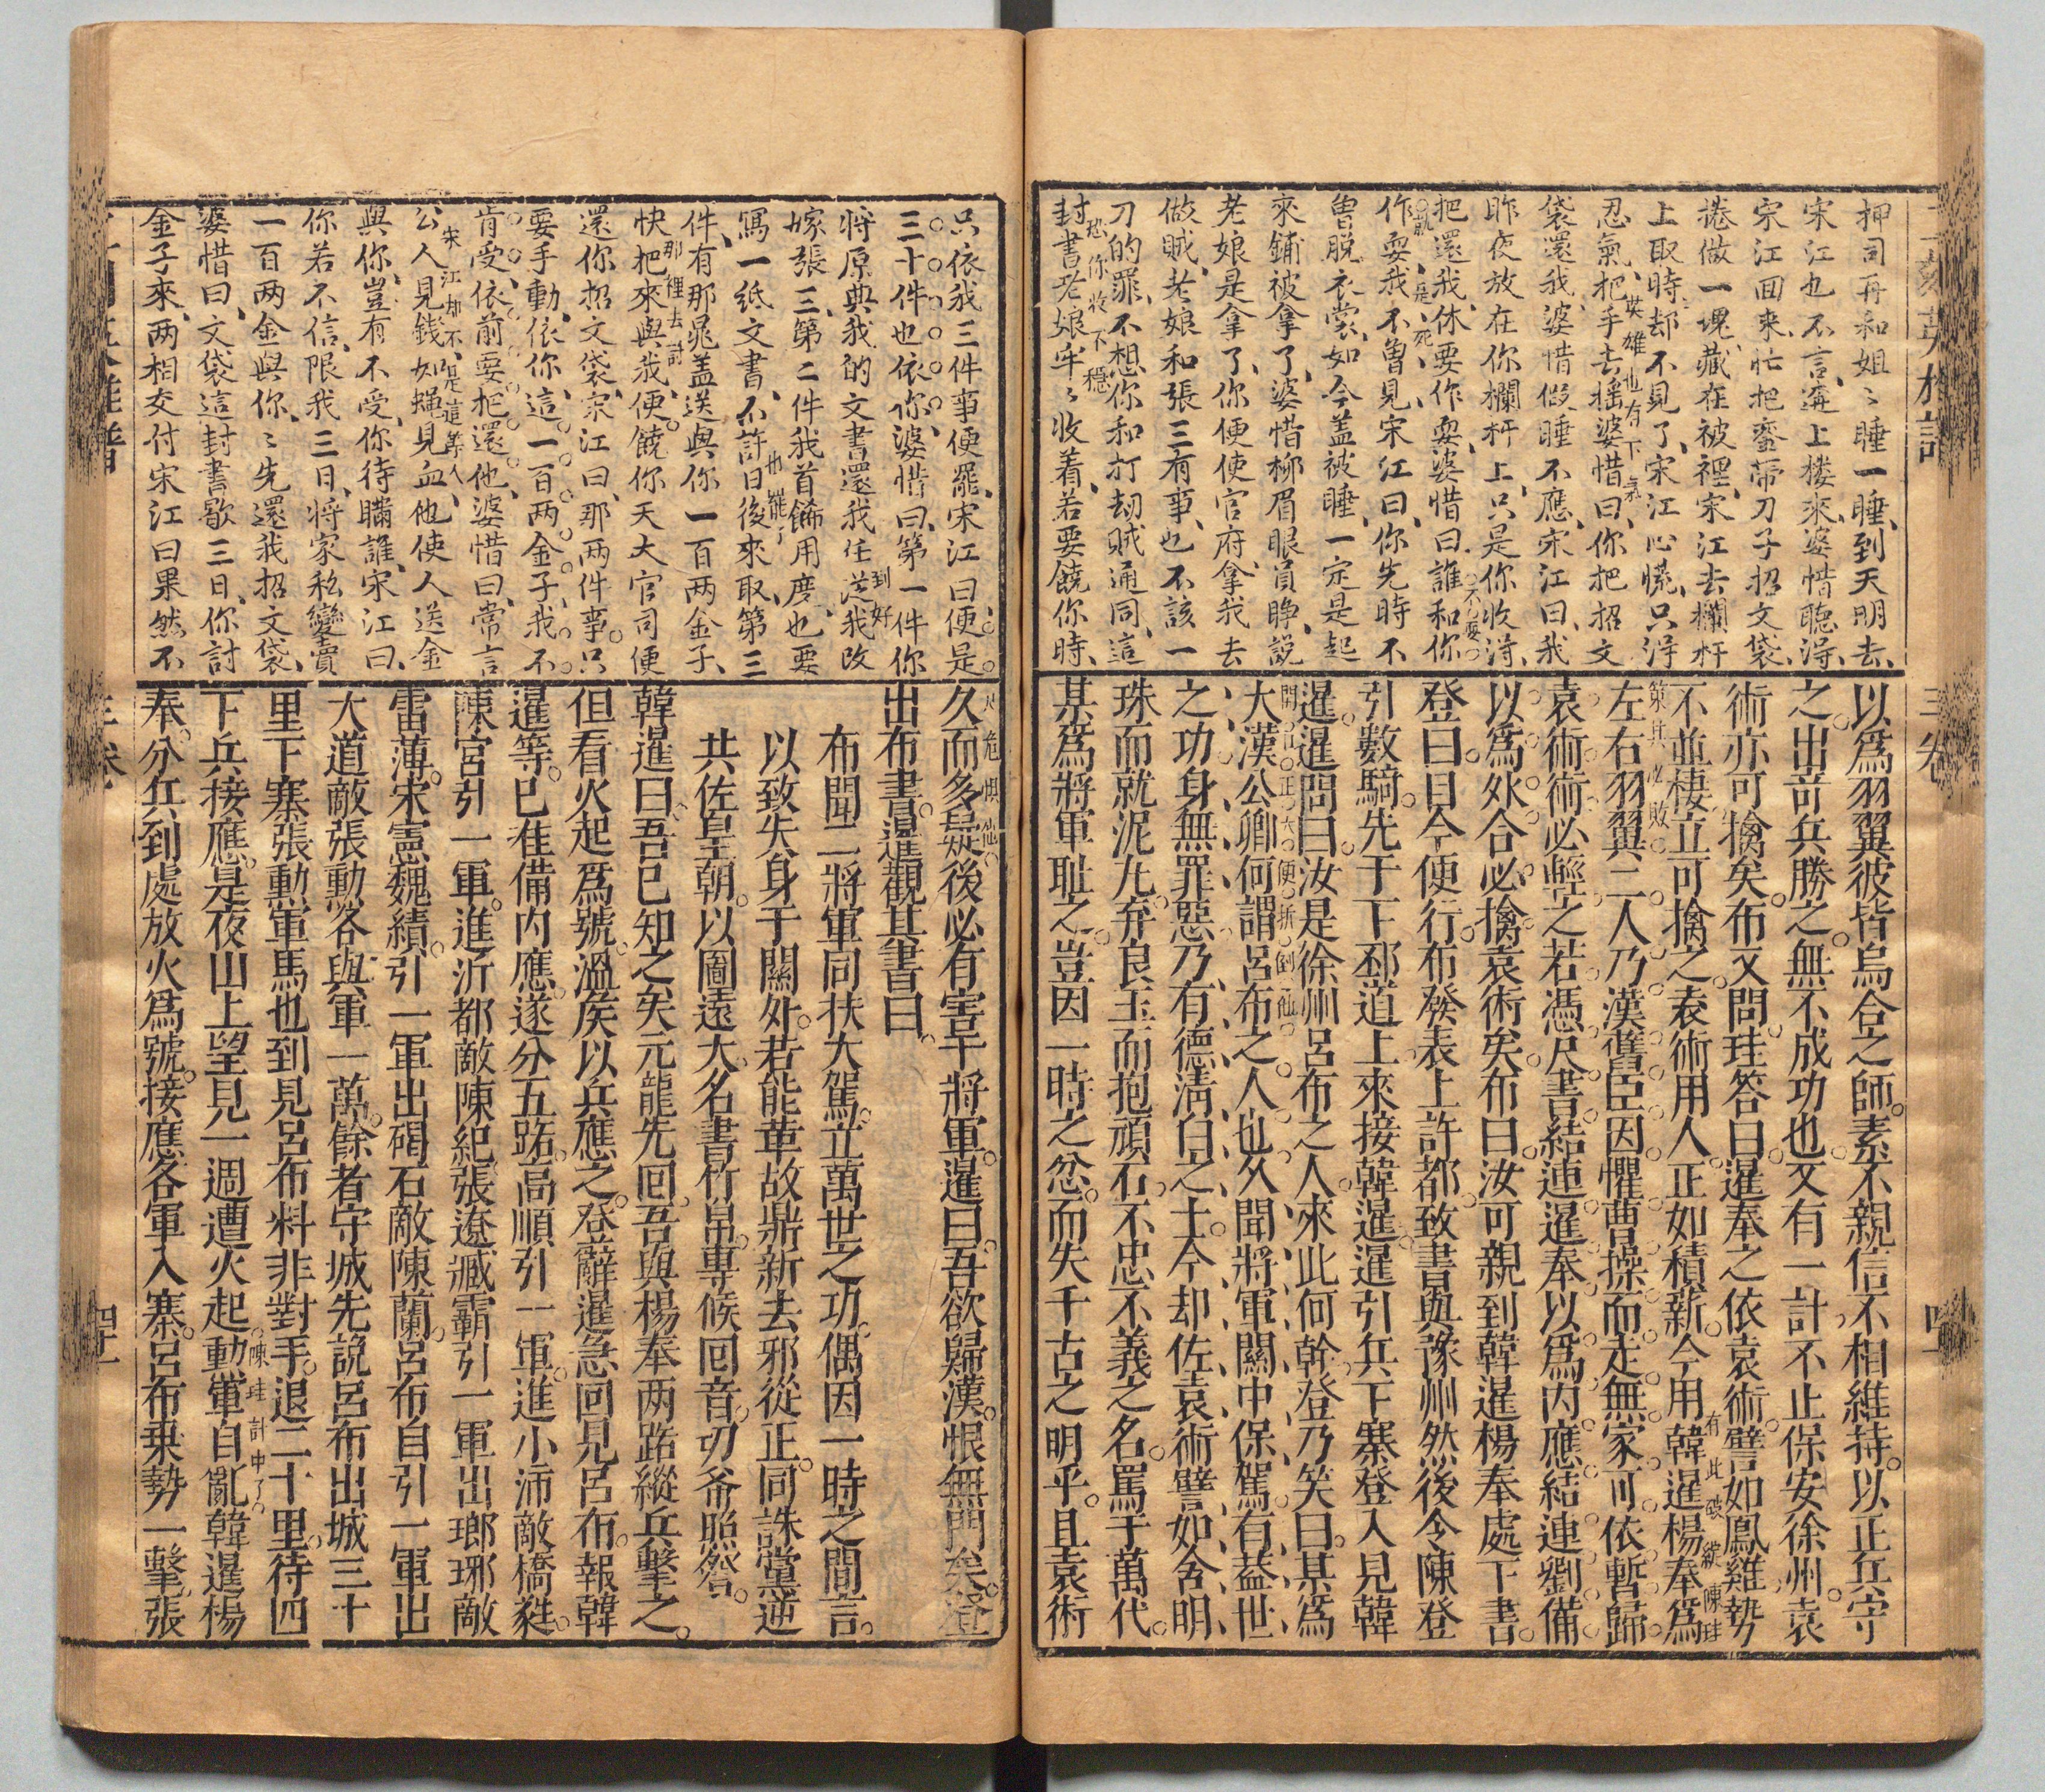 押司再和姐〻睡一睡、到天明去、
宋江也不言、逕上楼來、婆惜聽得、
宋江回來、忙把鸞帶刀子招文袋、
捲做一塊、藏在被裡、宋江去欄杆
上取時、却不見了、宋江心慌、只得
忍氣、把手去搖婆惜曰、你把招文
英雄也有下氣
袋還我、婆惜假睡不應、宋江曰、我
昨夜放在你欄杆上、只是你收得、
不耍
把還我、休要作耍、婆惜曰、誰和你
就是死
作耍、我不曾見、宋江曰、你先時不
曾脱衣裳、如今盖被睡、一定是起
來鋪被拿了、婆惜柳眉眼員睁、説
老娘是拿了、你便使官府、拿我去
做賊、老娘和張三有事、也不該一
刀的罪、不想你和打劫賊通同、這
恐你收下不穩
封書老娘牢〻收着、若要饒你時、
以爲羽翼彼皆烏合之師素不親信不相維持以正兵守
之出竒兵勝之無不成功也又有一計不止保安徐州袁
術亦可擒矣布又問珪答曰暹奉之依袁術譬如鳳雞勢
有此破縱陳珪
不並棲立可擒之袁術用人正如積薪今用韓暹楊奉爲
策其必敗
左右羽翼二人乃漢舊臣因懼曹操而走無家可依暫歸
袁術術必輕之若憑尺書結連暹奉以爲内應結連劉備
以爲外合必擒袁術矣布曰汝可親到韓暹楊奉處下書
登曰目今便行布發表上許都致書與豫州然後令陳登
引數騎先于下邳道上來接韓暹暹引兵下寨登入見韓
暹暹問曰汝是徐州呂布之人來此何幹登乃笑曰某爲
開口正大便折倒他
大漢公卿何謂呂布之人也久聞將軍關中保駕有蓋世
之功身無罪惡乃有德淸白之士今却佐袁術譬如舍明
珠而就泥丸弃良玉而抱頑石不忠不義之名罵于萬代
某爲將軍耻之豈因一時之忿而失千古之明乎且袁術
只依我三件事便罷、宋江曰、便是
三十件也依你、婆惜曰、第一件你
將原典我的文書還我、任從我改
到好
嫁張三、第二件我首餙用度、也要
也罷了
寫一紙文書、不許日後來取、第三
件有那晁盖送與你一百两金子、
那裡去討
快把來與我、便饒你天大官司便
還你招文袋、宋江曰、那两件事只
要手動、依你、這一百两金子、我不
肯受、依前要把還他、婆惜曰、常言
宋江却不是這等人
公人見錢、如蝿見血、他使人送金
與你、豈有不受、你待瞞誰、宋江曰、
你若不信、限我三日、将家私變賣
一百两金與你、〻先還我招文袋、
婆惜曰、文袋這封書歇三日、你討
金子來、两相交付宋江曰果然不
久而多疑後必有害于將軍暹曰吾欲歸漢恨無門矣登
出布書暹觀其書曰
布聞二將軍同扶大駕立萬世之功偶因一時之間言
以致失身于關外若能革故鼎新去邪從正同誅黨逆
共佐皇朝以圖遠大名書竹帛專候回音切希照詧
韓暹曰吾已知之矣元龍先回吾與楊奉两路縱兵擊之
但看火起爲號溫矦以兵應之登辭暹急回見呂布報韓
暹等已准備内應遂分五路高順引一軍進小沛敵橋蕤
陳宮引一軍進沂都敵陳紀張遼臧霸引一軍出瑯琊敵
雷薄宋憲魏績引一軍出碣石敵陳蘭呂布自引一軍出
大道敵張勳各與軍一萬餘者守城先說呂布出城三十
里下寨張勳軍馬也到見呂布料非對手退二十里待四
下兵接應是夜山上望見一週遭火起動軍自亂韓暹楊
陳珪計中了
奉分兵到處放火爲號接應各軍入寨呂布乗勢一擊張
三卷